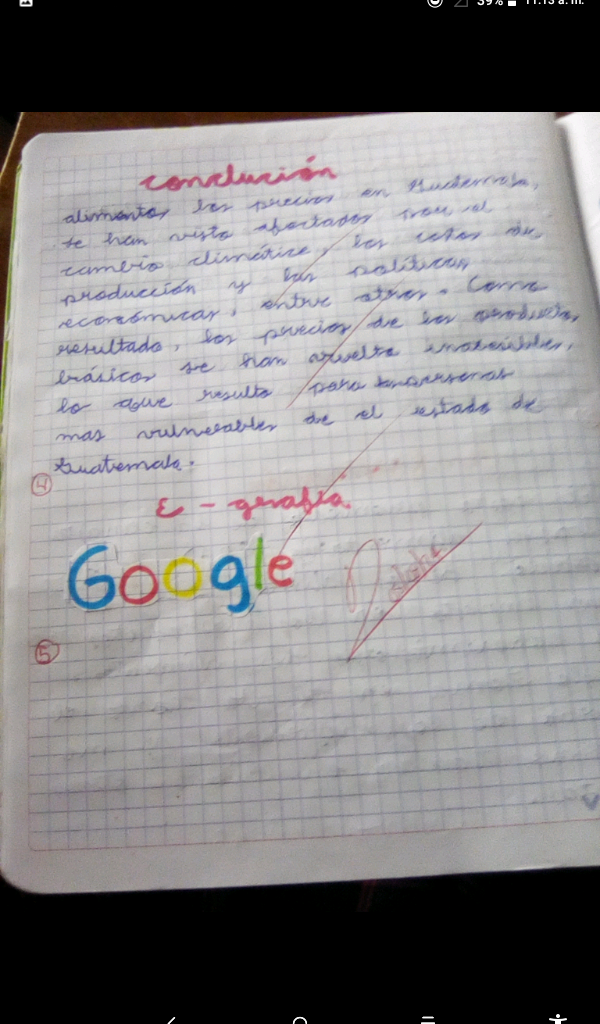 39% 11:13 a. m.
conclución
alimentos los precios en Guatemala,
se han visto afectados por el
cambio climático, los cotos de
producción y las políticas
económicas, entre otros. Como
resultado, los precios de los productos
básicos se han vuelto
lo que resulta para
mas vulnerables de el estado de
Guatemala.
4
E - grafía
Google
5